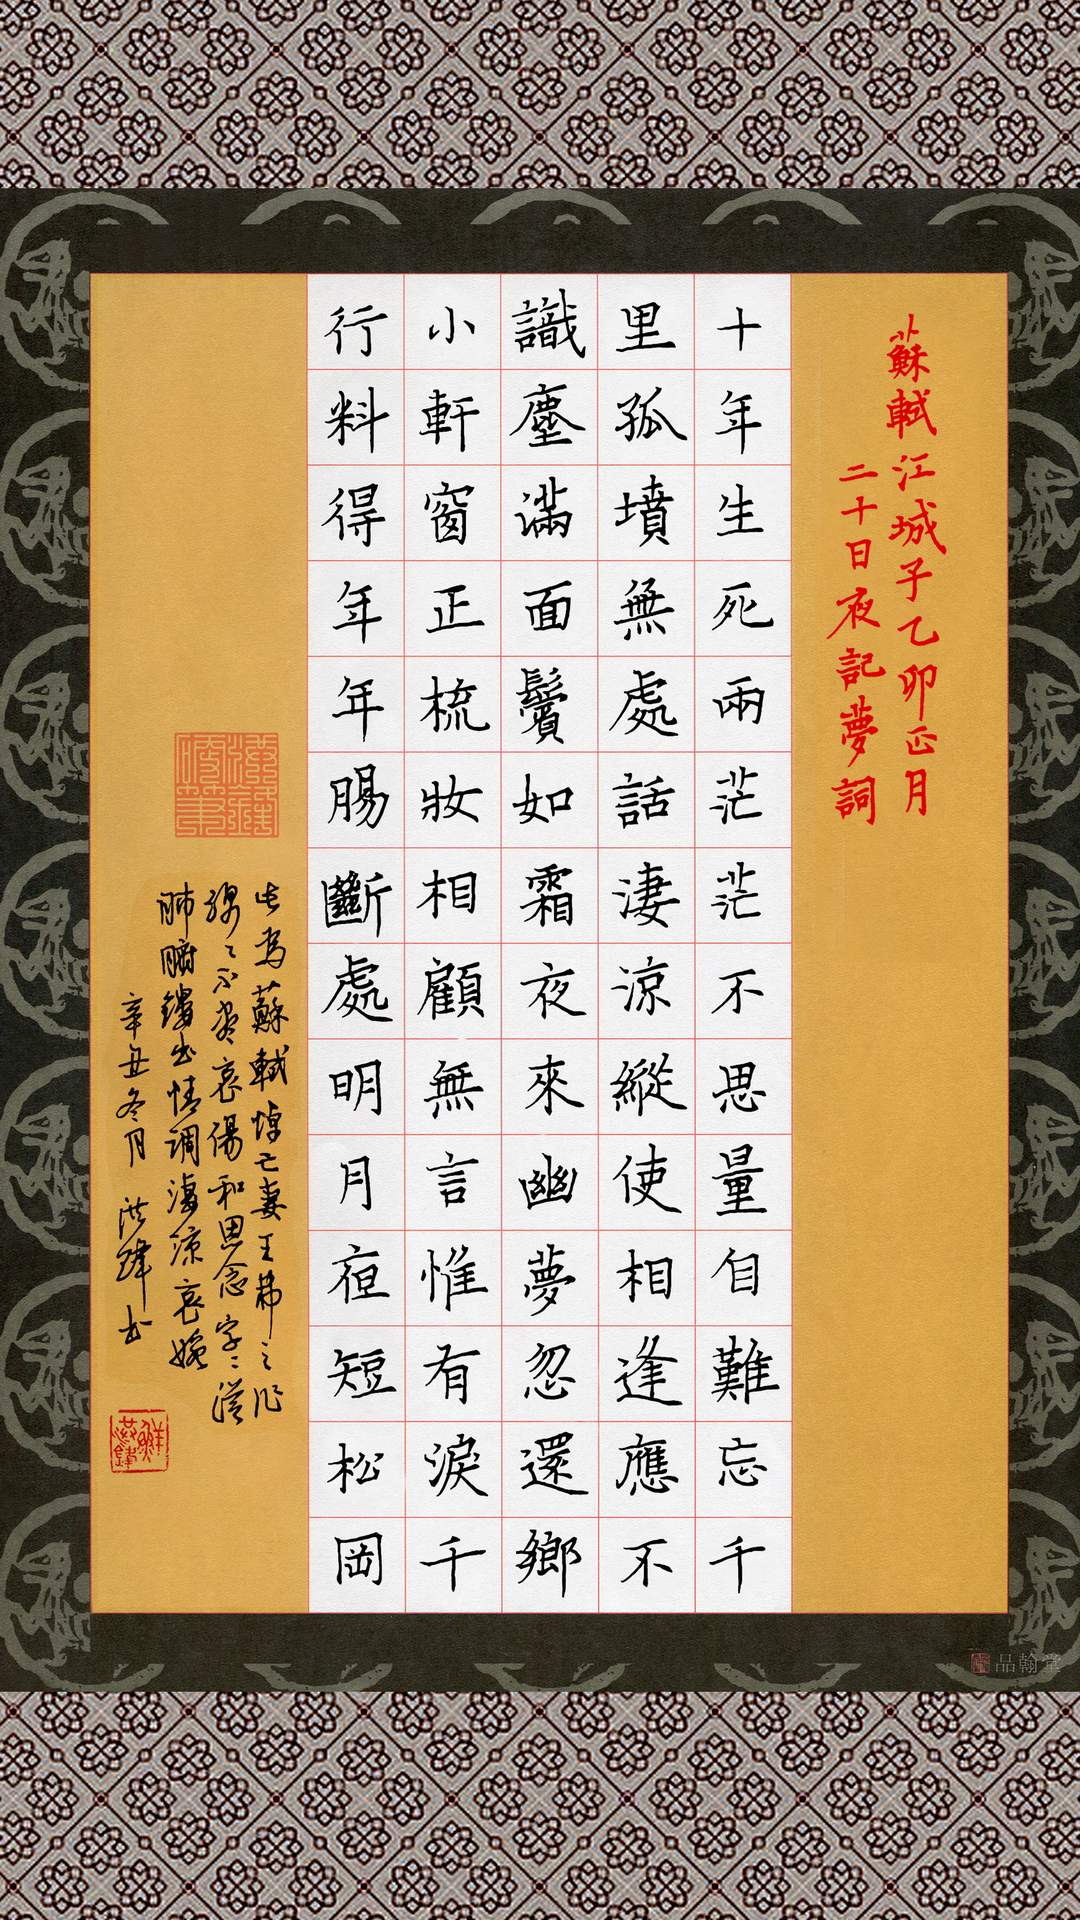 蘇軾江城子乙卯正月
二十日夜記夢詞
十年生死兩茫茫不思量自難忘千
里孤墳無處話淒涼縱使相逢應不
識塵滿面鬢如霜夜來幽夢忽還鄉
小軒窗正梳妝相顧無言惟有淚千
行料得年年腸斷處明月夜短松岡
此为蘇軾悼亡妻王弗之作
綿々不盡哀傷和思念字々從
肺腑鏤出情调淒涼哀婉
辛丑冬月 洪 书
品翰堂